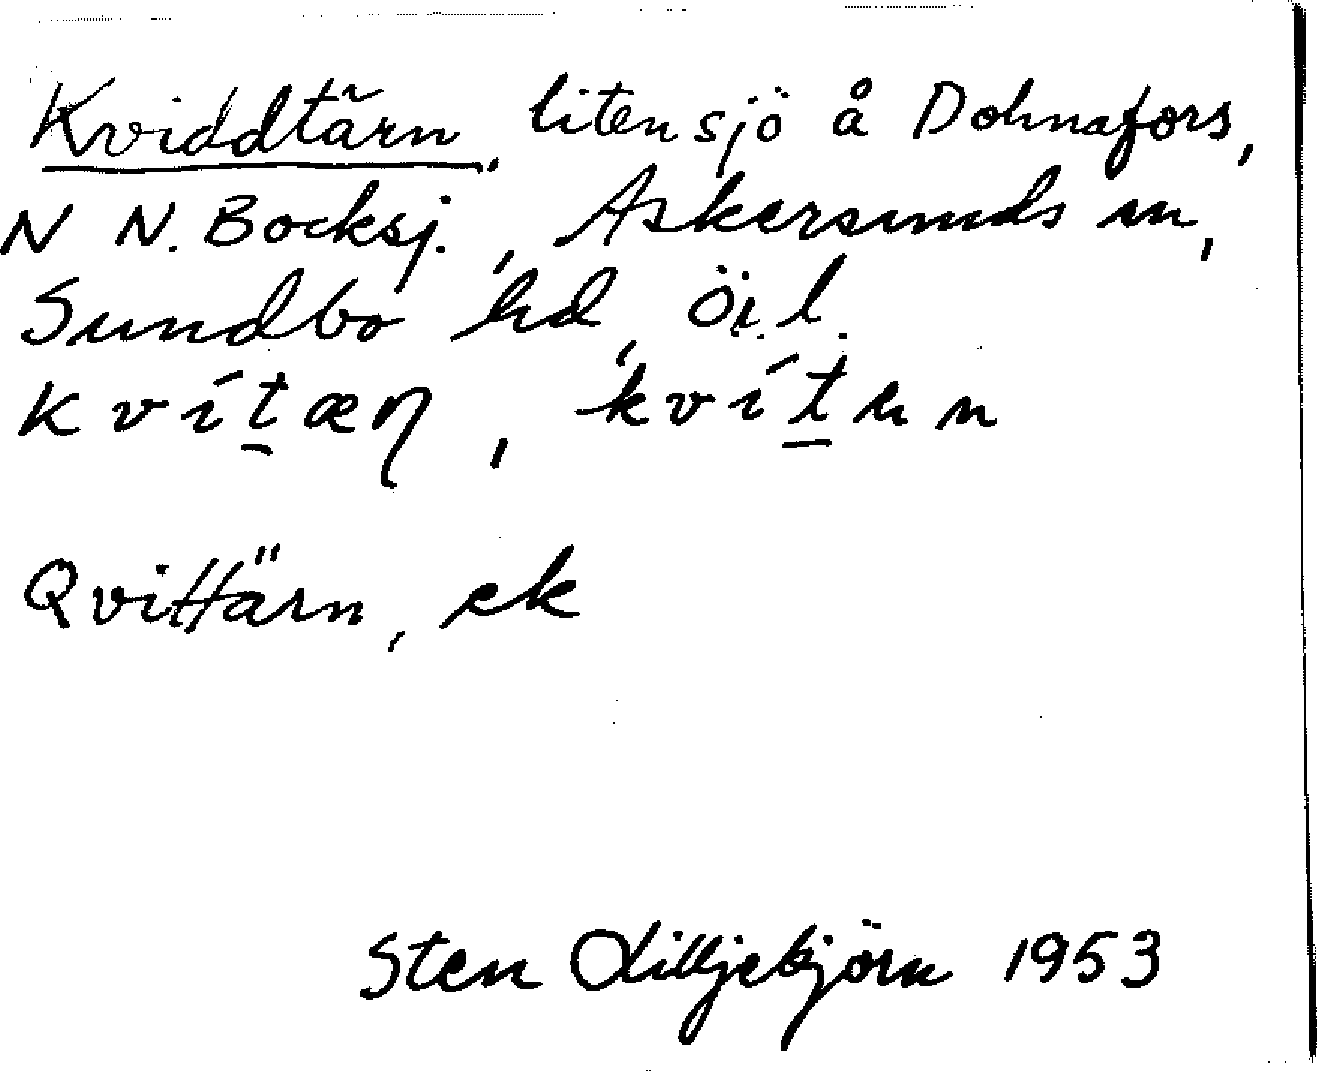 Kviddtärn, liten sjö å Dohnafors,
N N. Bocksj., Askersunds sn,
Sundbo hd, Ör. l.
kvítæn, kvítun
Qvittärn, ek
Sten Lilljebjörn 1953